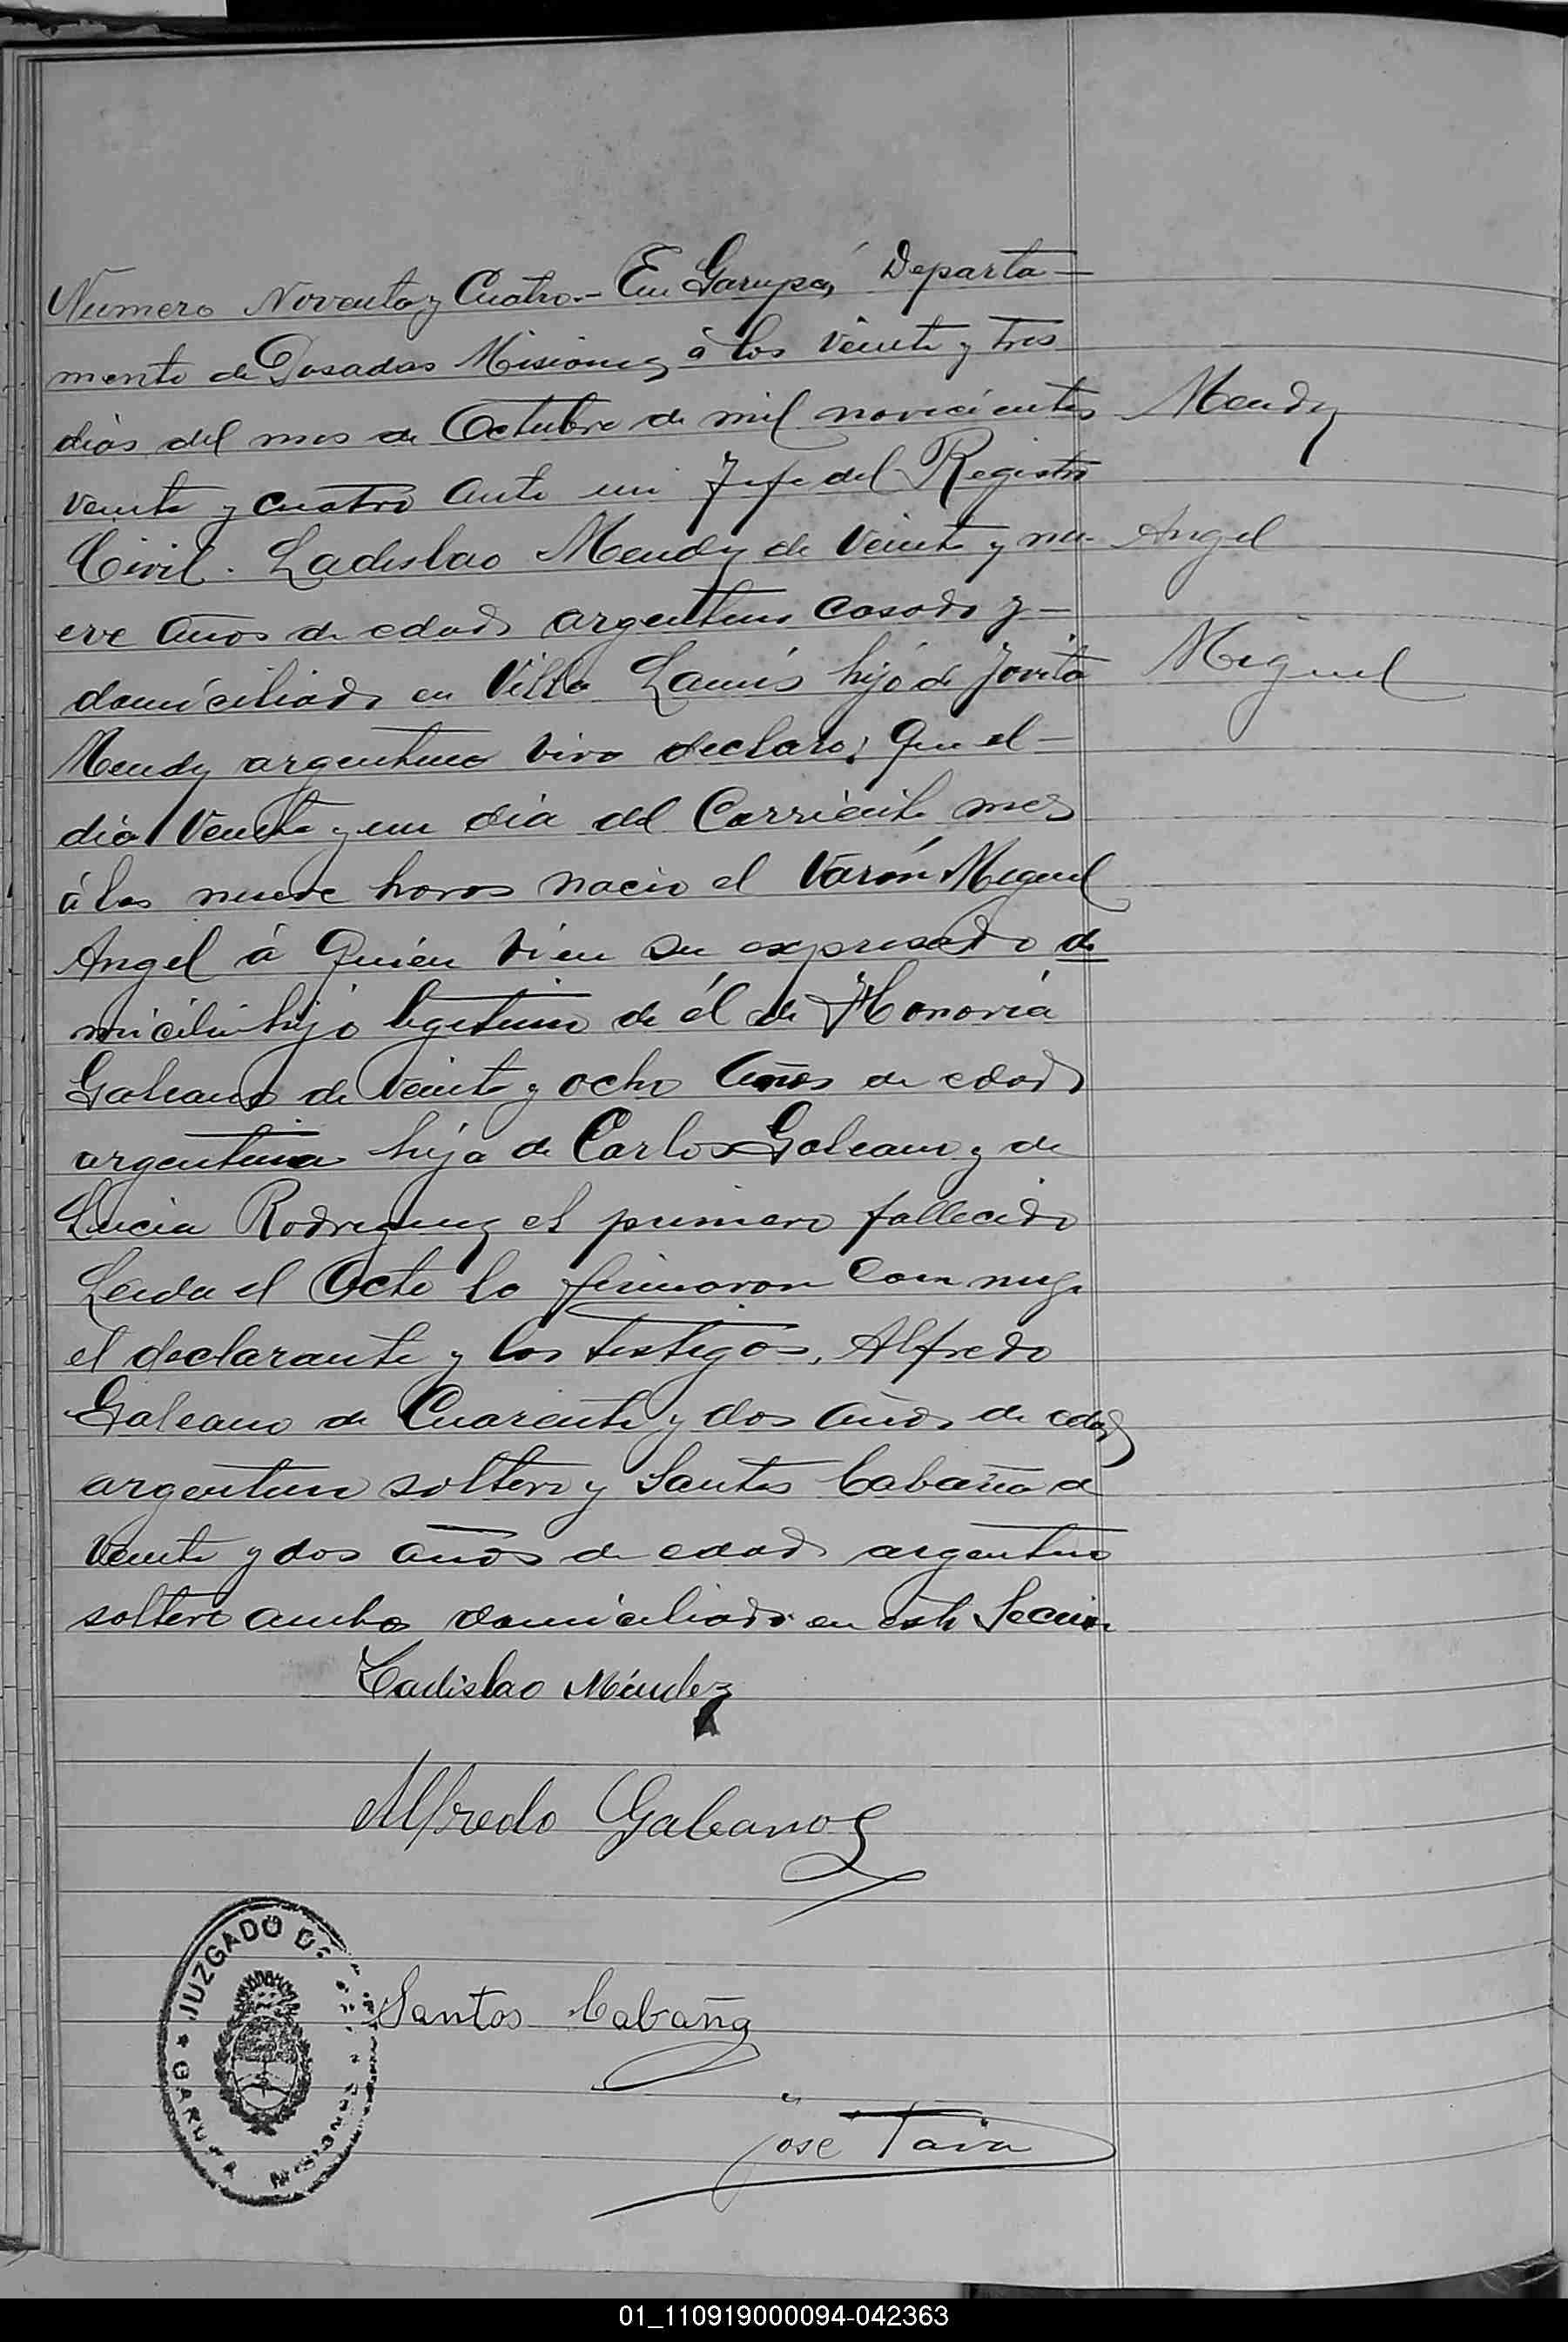 Numero Noventa y Cuatro.- En Garupá, Departa-
mento de Posadas Misiones, á los veinte y tres
dias del mes de Octubre de mil novecientos
veinte y cuatro ante mi Jefe del Registro
Civil. Ladislao Mendez de veinte y nu-
eve años de edad argentino casado y-
domiciliado en Villa Lanús hijo de Jovita
Mendez argentina viva declaro; Que el-
dia veinte y un dia del Corriente mes
á las nueve horas nacio el Varón Miguel
Angel á quien vi en su expresado do
micilio hijo legitimo de él de Honoria
Galeano de veinte y ocho años de edad
argentina hija de Carlos Galeano y de
Lucia Rodriguez el primero fallecido
Leida el Acta la firmaron con migo
el declarante y los testigos, Alfredo
Galeano de Cuarenta y dos años de edad
argentino soltero y Santos Cabaña de
veinte y dos años de edad argentino
soltero ambos domiciliado en esta Sección
Mendez
Angel
Miguel
Ladislao Méndez
Alfredo Galeano
Santos Cabaña
José
JUZGADO DE
GARUPA MISIONES
01_110919000094-042363